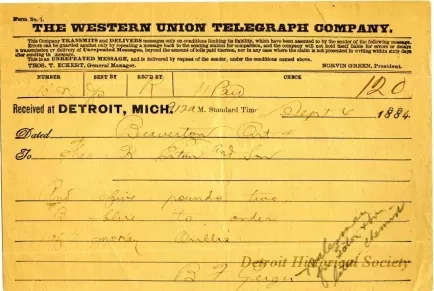 Form No. 1.
THE WESTERN UNION TELEGRAPH COMPANY.
This Company TRANSMITS and DELIVERS messages only on conditions limiting its liability, which have been assented to by the sender of the following message.
Errors can be guarded against only by repeating a message back to the sending station for comparison, and the company will not hold itself liable for errors or delays
in transmission or delivery of Unrepeated Messages, beyond the amount of tolls paid thereon, nor in any case where the claim is not presented in writing within sixty days
after sending the message.
This is an UNREPEATED MESSAGE, and is delivered by request of the sender, under the conditions named above.
THOS. T. ECKERT, General Manager. NORVIN GREEN, President.
NUMBER SENT BY REC'D BY CHECK
11 Paid 120
Received at DETROIT, MICH. M. Standard Time Sept 4 1884
Dated Beaverton Ont 4
To Theo H Eaton and Son
pounds two
to order
of Orillia
B F Geiger
Detroit Historical Society